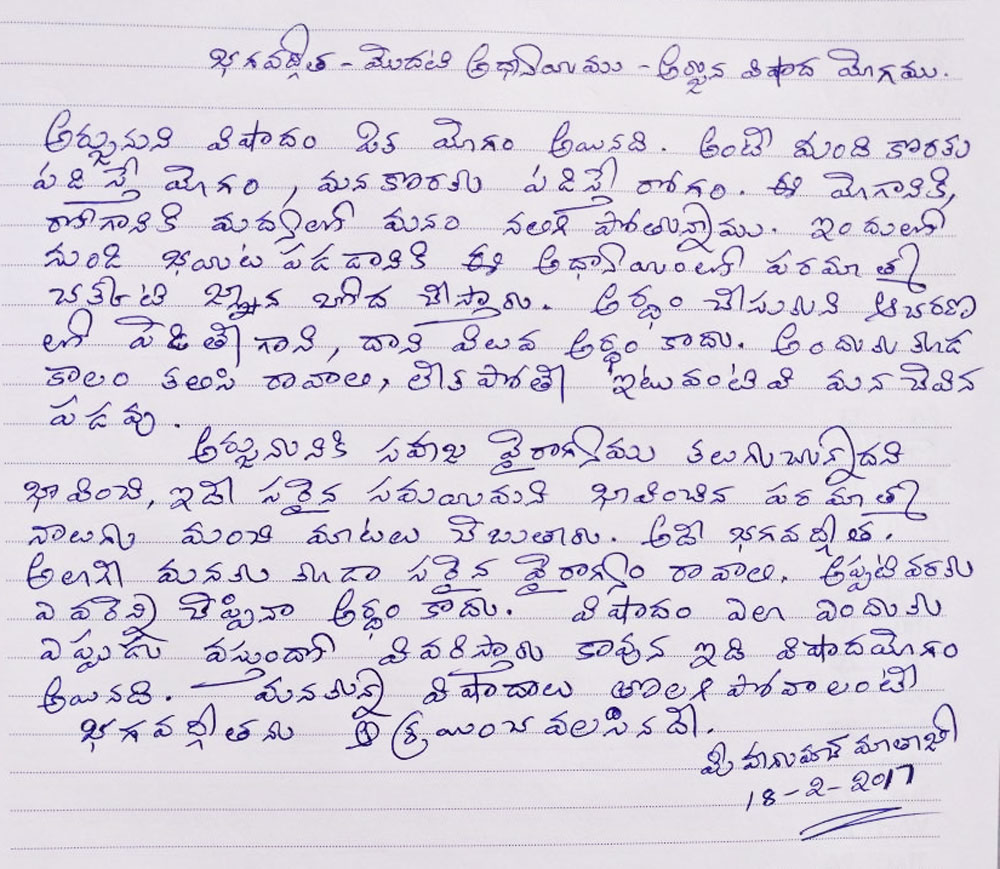 భగవద్గీత - మొదటి అధ్యాయము - అర్జున విషాద యోగము.
అర్జునుని విషాదం ఒక యోగం అయినది. అంటే మంచి కొరకు
పడిస్తే యోగం, మన కొరకు పడిస్తే రోగం. ఈ యోగానికి,
రోగానికి మధ్యలో మనం నలిగి పోతున్నాము. ఇందులో
నుండి భయట పడడానికి ఈ అధ్యాయంలో పరమాత్మ
చక్కటి జ్ఞాన బోధ చేస్తారు. అర్ధం చేసుకుని ఆచరణ
లో పెడితే గాని, దాని విలువ అర్ధం కాదు. అందుకు కూడ
కాలం కలసి రావాలి, లేకపోతే ఇటువంటివి మన చెవిన
పడవు.
అర్జునునికి సహజ వైరాగ్యము కలుగుచున్నాదని
భావించి, ఇదే సరైన సమయమని భావించిన పరమాత్మ
నాలుగు మంచి మాటలు చెబుతారు. అదే భగవద్గీత.
అలాగే మనకు కూడా సరైన వైరాగ్యం రావాలి. అప్పటివరకు
ఎవరెన్ని చెప్పినా అర్ధం కాదు. విషాదం ఎలా ఎందుకు
ఎప్పుడు వస్తుందో వివరిస్తారు కావున ఇది విషాదయోగం
అయినది. మనకున్న విషాదాలు తొలగి పోవాలంటే
భగవద్గీతను ఆశ్రయించ వలసినదే.
మాతాజీ
18-2-2017